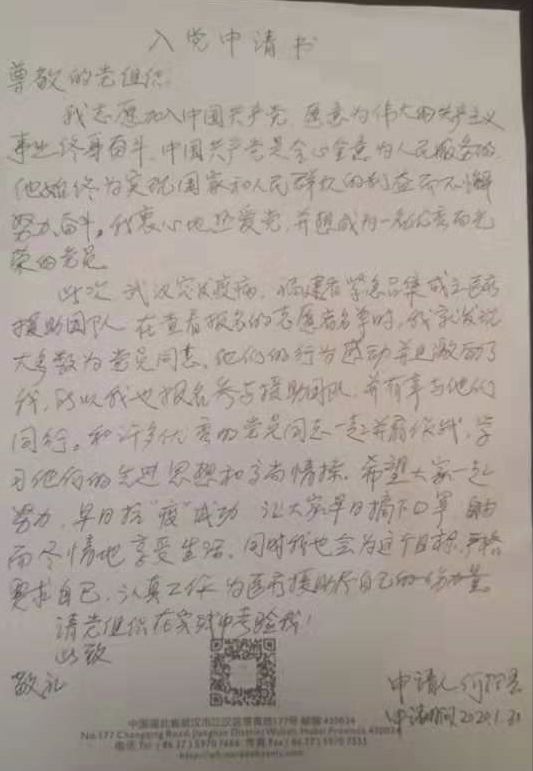 入党申请书
尊敬的党组织:
我志愿加入中国共产党,愿意为伟大的共产主义
事业终身奋斗。中国共产党是全心全意为人民服务的,
他始终为实现国家和人民群众的利益而不懈
努力奋斗。我衷心地热爱党,并想成为一名优秀而光
荣的党员。
此次武汉突发疫病,福建省紧急召集成立医疗
援助团队 在查看报名的志愿者名单时,我发现
大多数为党员同志,他们的行为感动并且激励了
我,所以我也报名参与援助团队,并有幸与他们
同行。和许多优秀的党员同志一起并肩作战,学
习他们的先进思想和高尚情操。希望大家一起
努力,早日抗“疫”成功 让大家早日摘下口罩,自由
而尽情地享受生活。同时我也会为这个目标,严格
要求自己,认真工作 为医疗援助尽自己的份力量。
请党组织在实践中考验我!
此致
敬礼
申请人 何
申请时间 2020.1.31
中国湖北省武汉市江汉区常青路177号 邮编 430024
No.177 Changqing Road, Jianghan District Wuhan, Hubei Province 430024
电话 Tel (86 27) 5970 7666 传真 Fax (86 27) 5970 7555